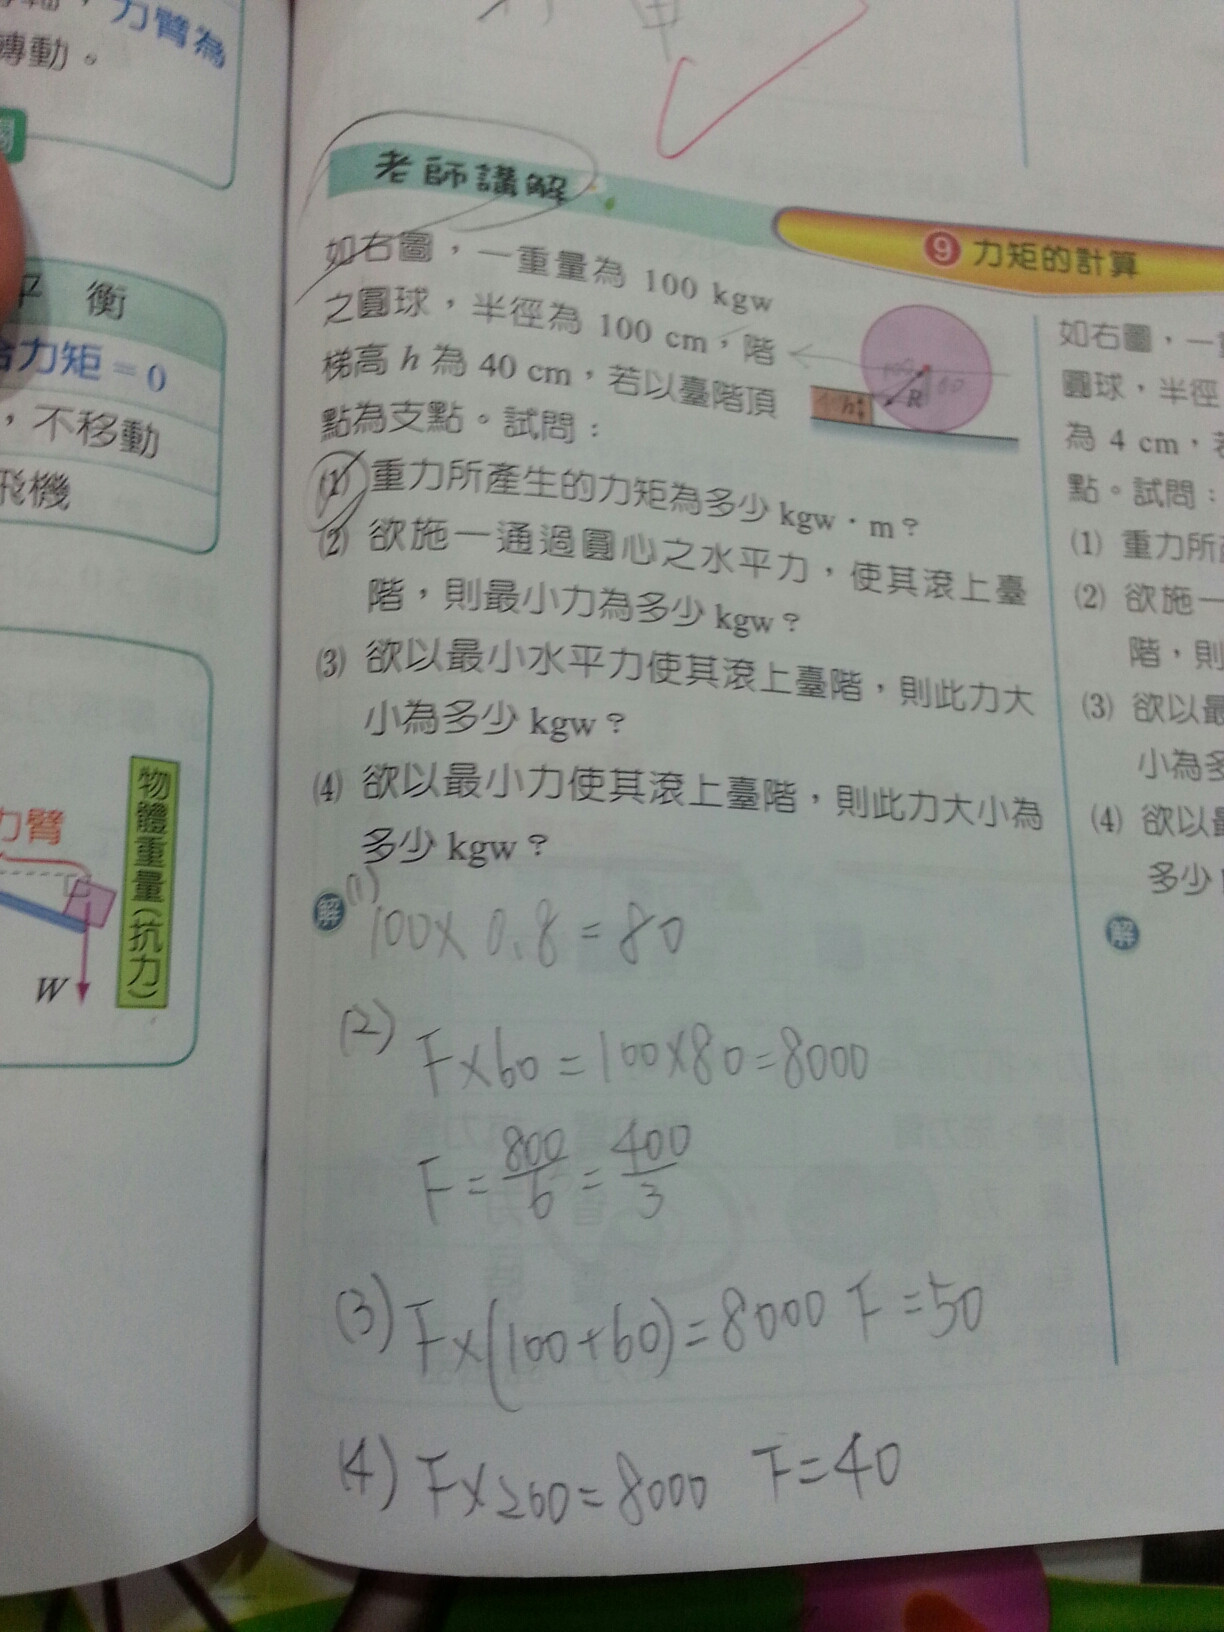 力臂為
轉動。
平衡
合力矩=0
,不移動
飛機
力臂
物體重量(抗力)
W
老師講解
9 力矩的計算
如右圖,一重量為 100 kgw
之圓球,半徑為 100 cm,階
梯高 h 為 40 cm,若以臺階頂
點為支點。試問:
h
R
(1) 重力所產生的力矩為多少 kgw・m?
(2) 欲施一通過圓心之水平力,使其滾上臺
階,則最小力為多少 kgw?
(3) 欲以最小水平力使其滾上臺階,則此力大
小為多少 kgw?
(4) 欲以最小力使其滾上臺階,則此力大小為
多少 kgw?
解
(1) 100×0.8=80
(2) F×60=100×80=8000
F=800/6=400/3
(3) F×(100+60)=8000 F=50
(4) F×200=8000 F=40
如右圖,一
圓球,半徑
為 4 cm,
點。試問:
(1) 重力所
(2) 欲施一
階,則
(3) 欲以最
小為多
(4) 欲以最
多少
解